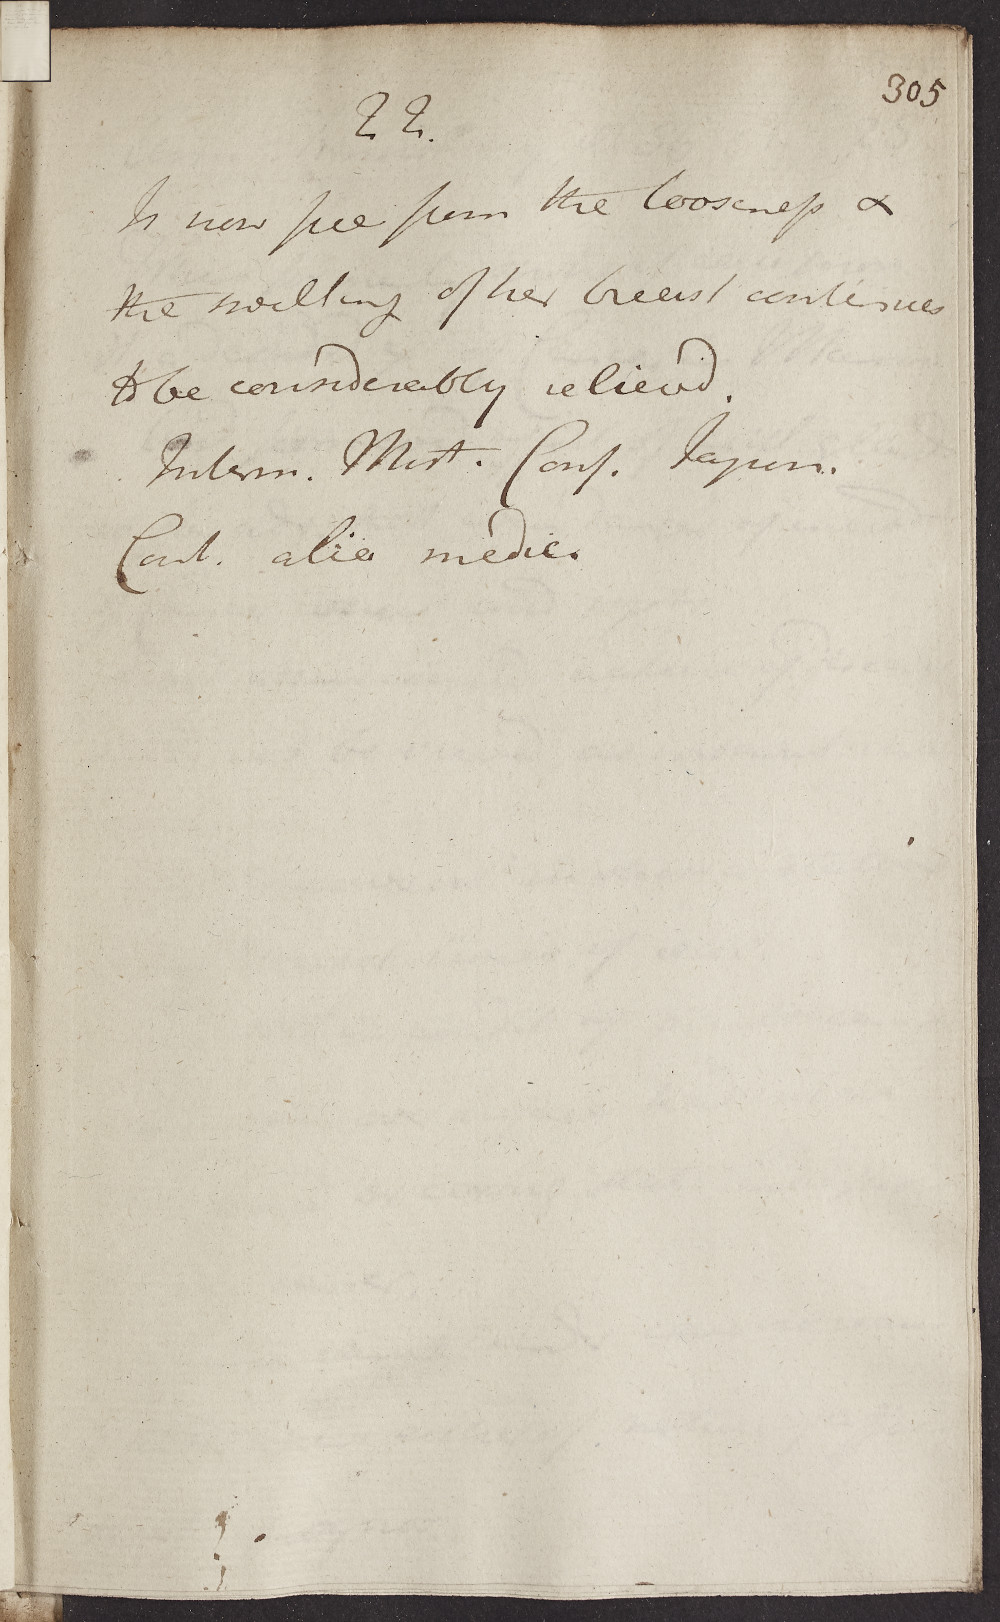 305
22.
Is now free from the looseness &
the swelling of her breast continues
to be considerably relievd.
Interm. Mist. Conf. Japon.
Cont. alia medic.